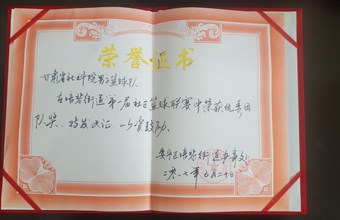 荣誉证书
甘肃省社科院男子篮球队：
在培黎街道第一届社区篮球联赛中荣获优秀团
队奖，特发此证，以资鼓励。
安宁区培黎街道办事处
二〇一七年